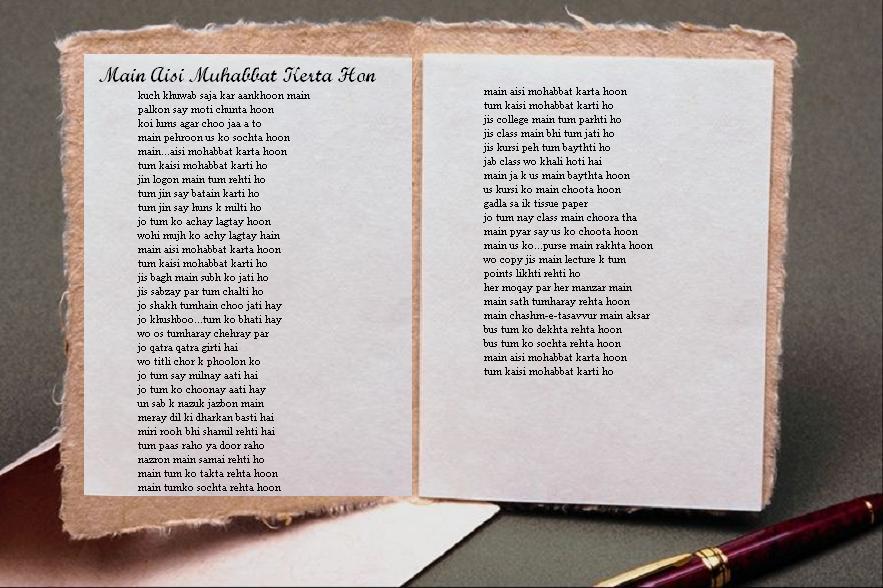 Main Aisi Muhabbat Kerta Hon
kuch khuwab saja kar aankhoon main
palkon say moti chunta hoon
koi lums agar choo jaa a to
main pehroon us ko sochta hoon
main...aisi mohabbat karta hoon
tum kaisi mohabbat karti ho
jin logon main tum rehti ho
tum jin say batain karti ho
tum jin say huns k milti ho
jo tum ko achay lagtay hoon
wohi mujh ko achy lagtay hain
main aisi mohabbat karta hoon
tum kaisi mohabbat karti ho
jis bagh main subh ko jati ho
jis sabzay par tum chalti ho
jo shakh tumhain choo jati hay
jo khushboo...tum ko bhati hay
wo os tumharay chehray par
jo qatra qatra girti hai
wo titli chor k phoolon ko
jo tum say milnay aati hai
jo tum ko choonay aati hay
un sab k nazuk jazbon main
meray dil ki dharkan basti hai
miri rooh bhi shamil rehti hai
tum paas raho ya door raho
nazron main samai rehti ho
main tum ko takta rehta hoon
main tumko sochta rehta hoon
main aisi mohabbat karta hoon
tum kaisi mohabbat karti ho
jis college main tum parhti ho
jis class main bhi tum jati ho
jis kursi peh tum baythti ho
jab class wo khali hoti hai
main ja k us main baythta hoon
us kursi ko main choota hoon
gadla sa ik tissue paper
jo tum nay class main choora tha
main pyar say us ko choota hoon
main us ko...purse main rakhta hoon
wo copy jis main lecture k tum
points likhti rehti ho
her moqay par her manzar main
main sath tumharay rehta hoon
main chashm-e-tasavvur main aksar
bus tum ko dekhta rehta hoon
bus tum ko sochta rehta hoon
main aisi mohabbat karta hoon
tum kaisi mohabbat karti ho